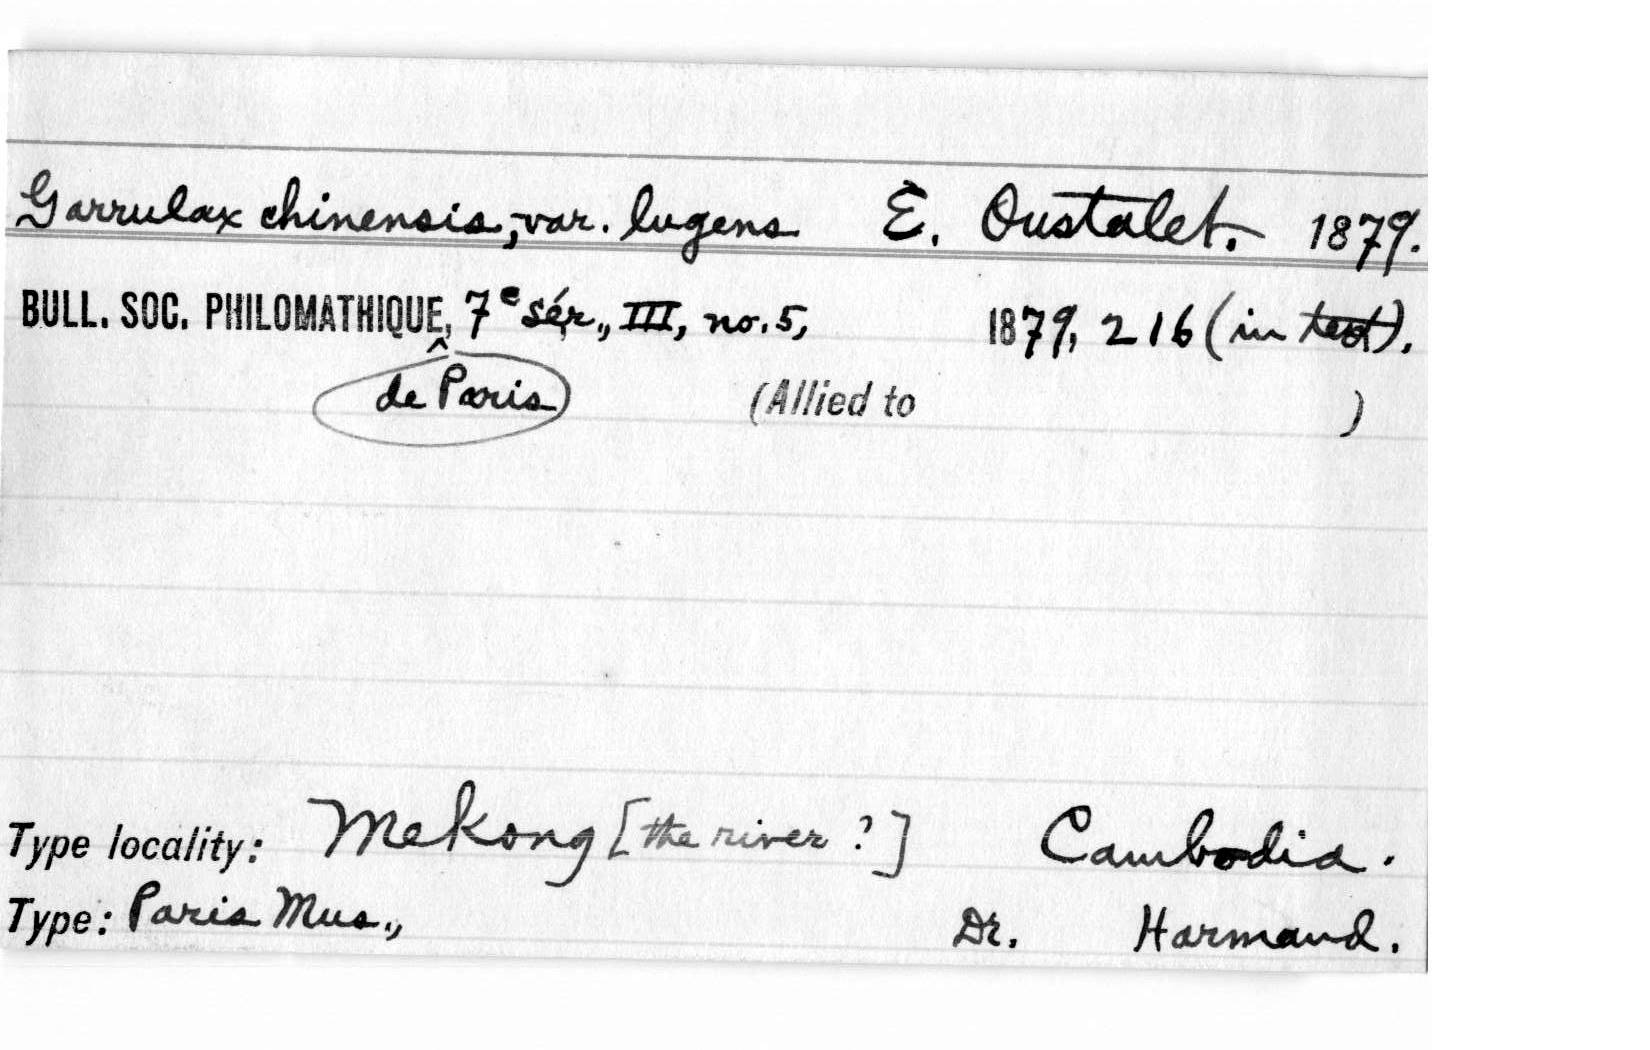 Garrulax chinensis, var. lugens E. Oustalet. 1879.
BULL. SOC. PHILOMATHIQUE, 7e sér., III, no. 5, 1879, 216 (in text).
^
de Paris (Allied to )
Type locality: Mekong [the river ?] Cambodia.
Type: Paris Mus., Dr. Harmand.